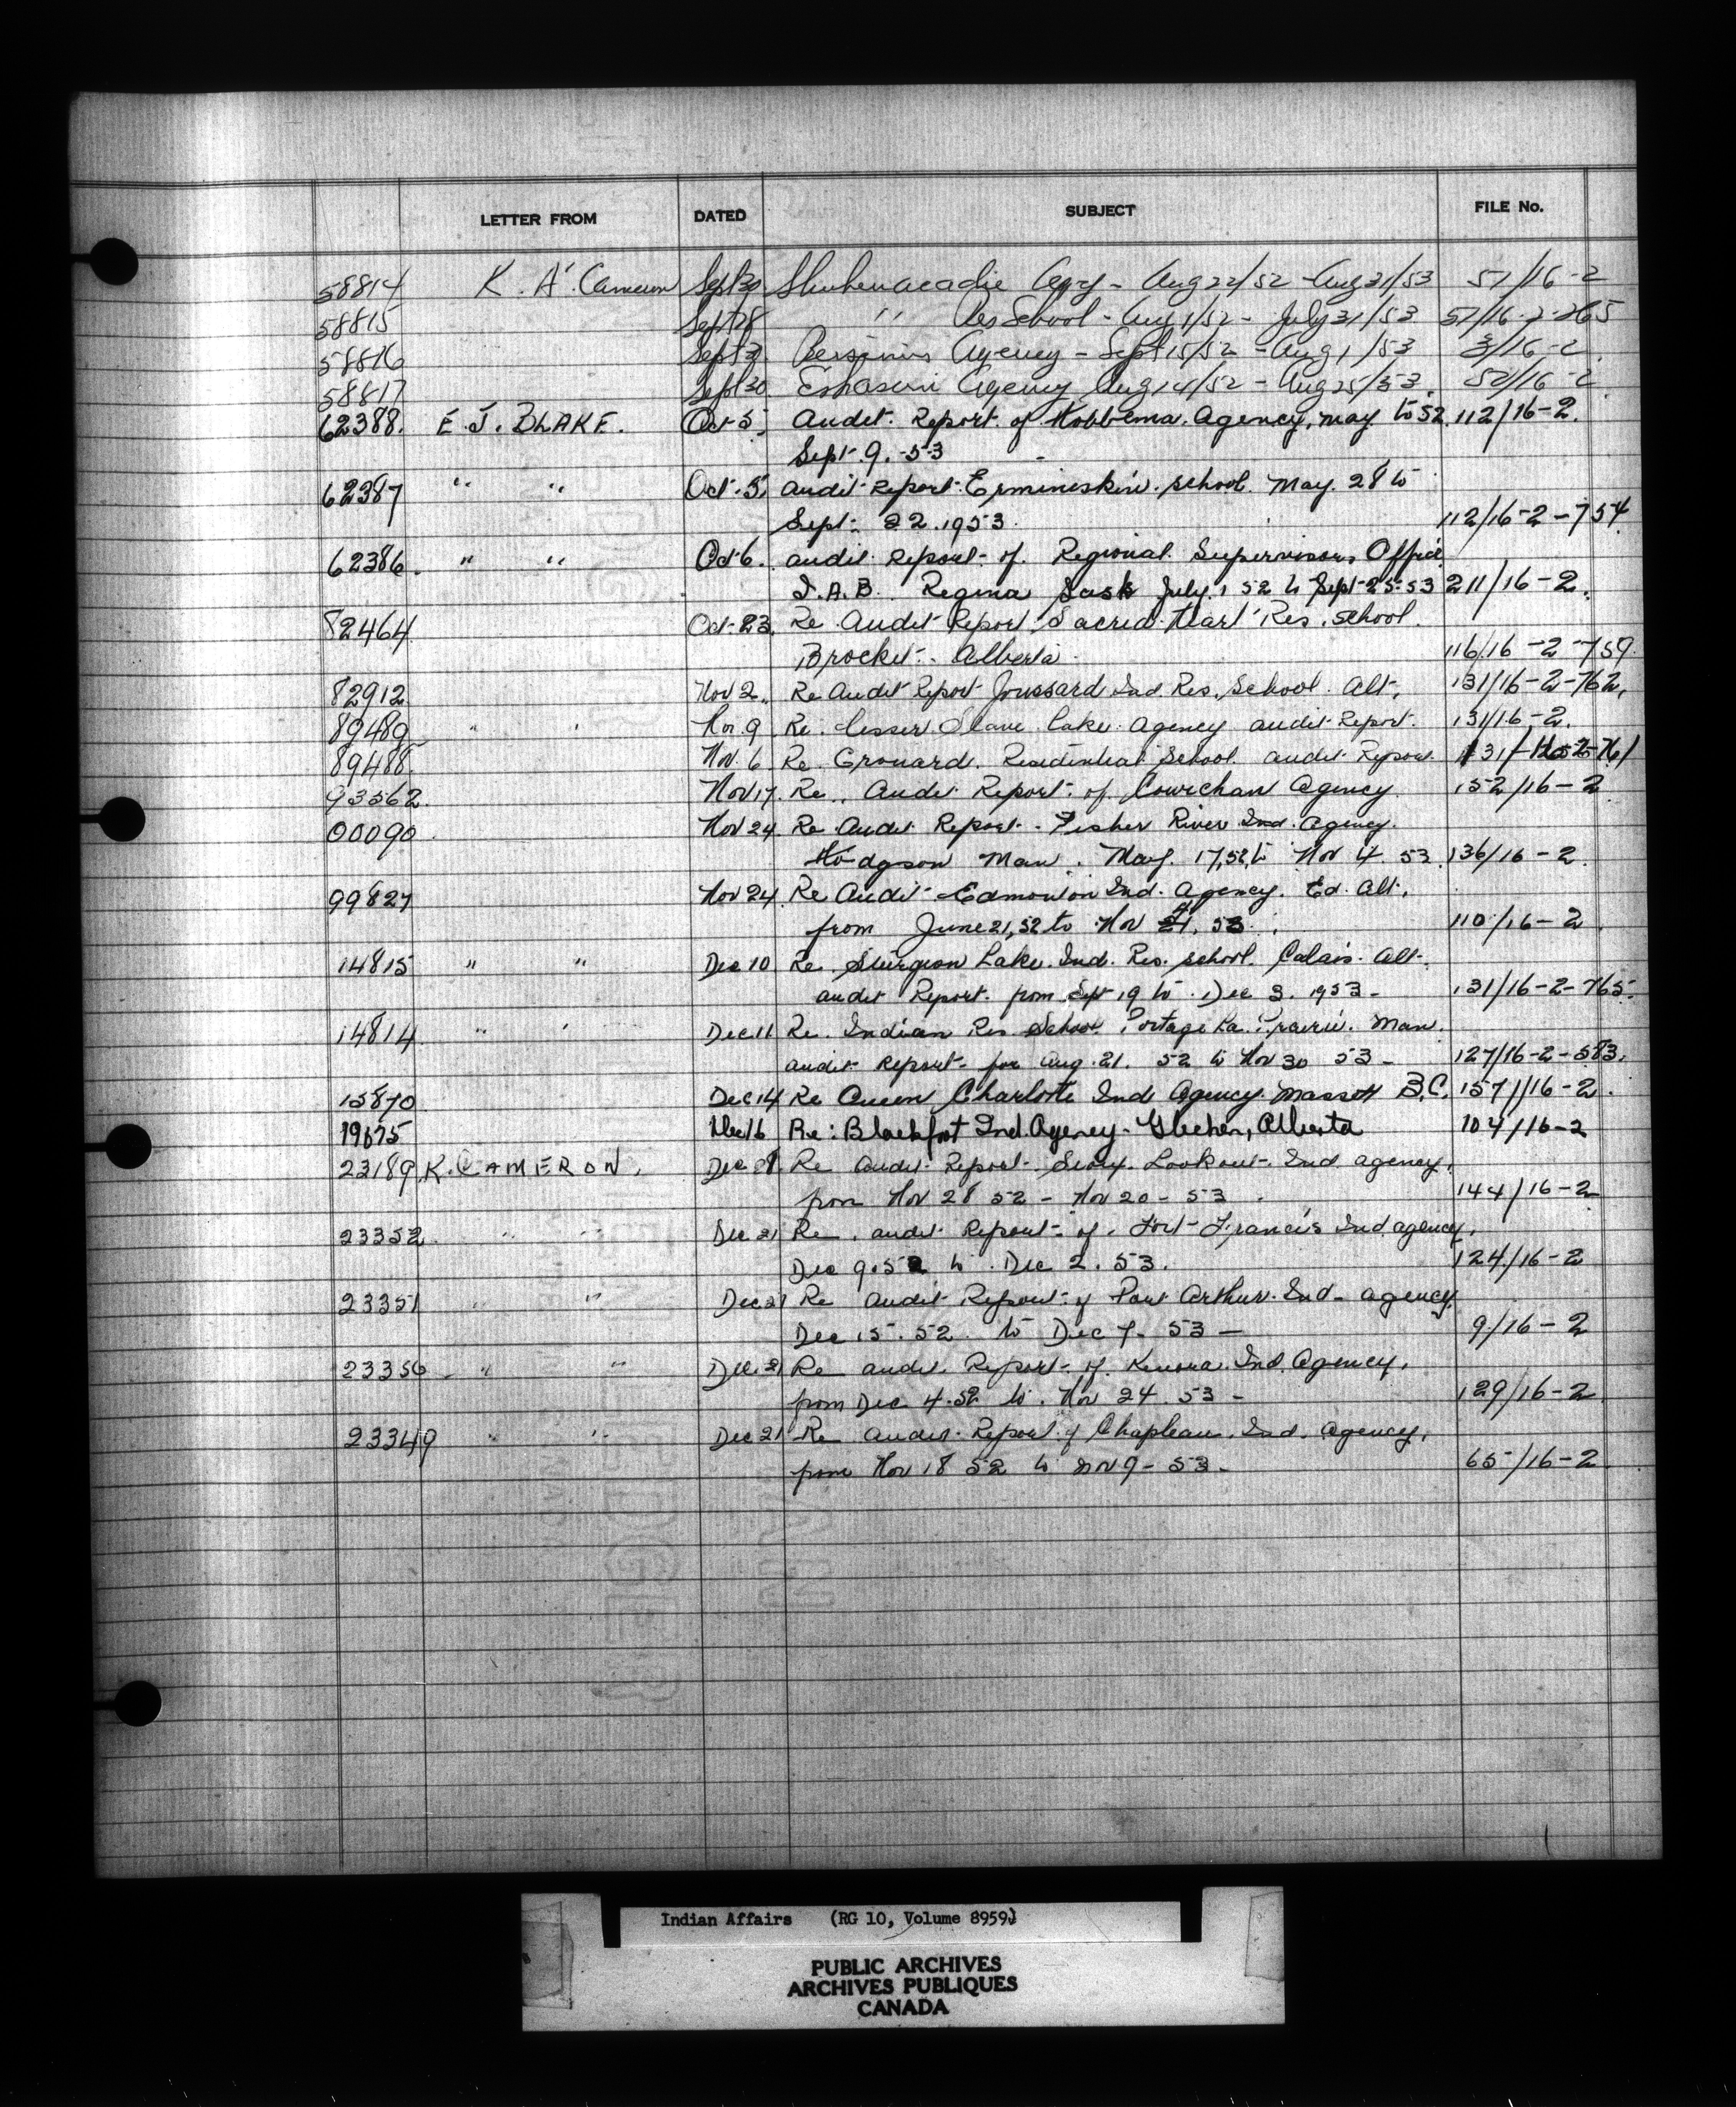 LETTER FROM DATED SUBJECT FILE No.
58814 K. A. Cameron Sept 30 Shubenacadie Agcy - Aug 22/52 - Aug 31/53 51/16-2
58815 Sept 28 " Res School - Aug 1/52 - July 31/53 51/16-2-265
58816 Sept Bersimis Agency - Sept 15/52 - Aug 1/53 3/16-2.
58817 Sept 30 Eskasoni Agency Aug 14/52 - Aug 25/53. 52/16-2
62388. E. J. BLAKE. Oct 5. Audit. Report. of Hobbema. Agency, may to 52. 112/16-2.
Sept. 9. -53 -
62387 " " Oct. 5. audit Report. Ermineskin. school. May. 28 to
Sept. 22. 1953. 112/16-2-754
62386. " " Oct 6. audit report. of. Regional. Supervisors Office
I.A.B. Regina Sask July. 1 52 to Sept 25-53 211/16-2.
82464 Oct-23. Re Audit Report Sacred Heart Res. school.
Brocket. Alberta. 116/16-2-759.
82912. Nov 2. Re Audit Report Joussard Ind Res. School. Alt. 131/16-2-762.
89489 " " Nov. 9 Re. Lesser Slave Lake. Agency audit Report. 131/16-2.
89488. Nov. 6 Re. Grouard. Residential School. audit Report. 131/16-2-761
93562. Nov 17. Re. Audit Report. of. Cowichan Agency. 152/16-2
00090. Nov 24 Re Audit Report. Fisher River Ind. agency.
Hodgson Man. May. 17, 52 to Nov 4 53. 136/16-2.
99827 Nov 24. Re Audit Edmonton Ind. agency. Ed. Alt.
from June 21, 52 to Nov 53. 110/16-2.
14815 " " Dec 10 Re. Sturgeon Lake. Ind. Res. school. Calais. Alt.
audit Report. from Sept 19 to. Dec 3. 1953 - 131/16-2-765.
14814 " " Dec 11 Re. Indian Res School Portage La. Prairie. Man.
audit Report. for Aug. 21. 52 to Nov 30 53 - 127/16-2-583.
15870 Dec 14 Re Queen Charlotte Ind Agency. Massett B.C. 157/16-2.
19675 Dec 16 Re: Blackfoot Ind. Agency - Gleichen, Alberta 104/16-2
23189. K. CAMERON. Dec 21 Re Audit Report. Sioux Lookout. Ind agency.
from Nov 28 52 - Nov 20 - 53. 144/16-2
23352. " " Dec 21 Re. audit Report. of. Fort Francis Ind. agency.
Dec 9. 52 to. Dec 2. 53. 124/16-2
23351 " " Dec 21 Re Audit Report. of Port Arthur. Ind. agency.
Dec 15. 52. to Dec 7. 53 - 9/16-2
23350. " " Dec. 21 Re audit. Report. of Kenora. Ind. Agency.
from Dec 4. 52 to. Nov 24. 53 - 129/16-2
23349 " " Dec 21 Re Audit. Report. of Chapleau. Ind. Agency.
from Nov 18 52 to Nov 9 - 53 - 65/16-2.
Indian Affairs (RG 10, Volume 8959)
PUBLIC ARCHIVES
ARCHIVES PUBLIQUES
CANADA